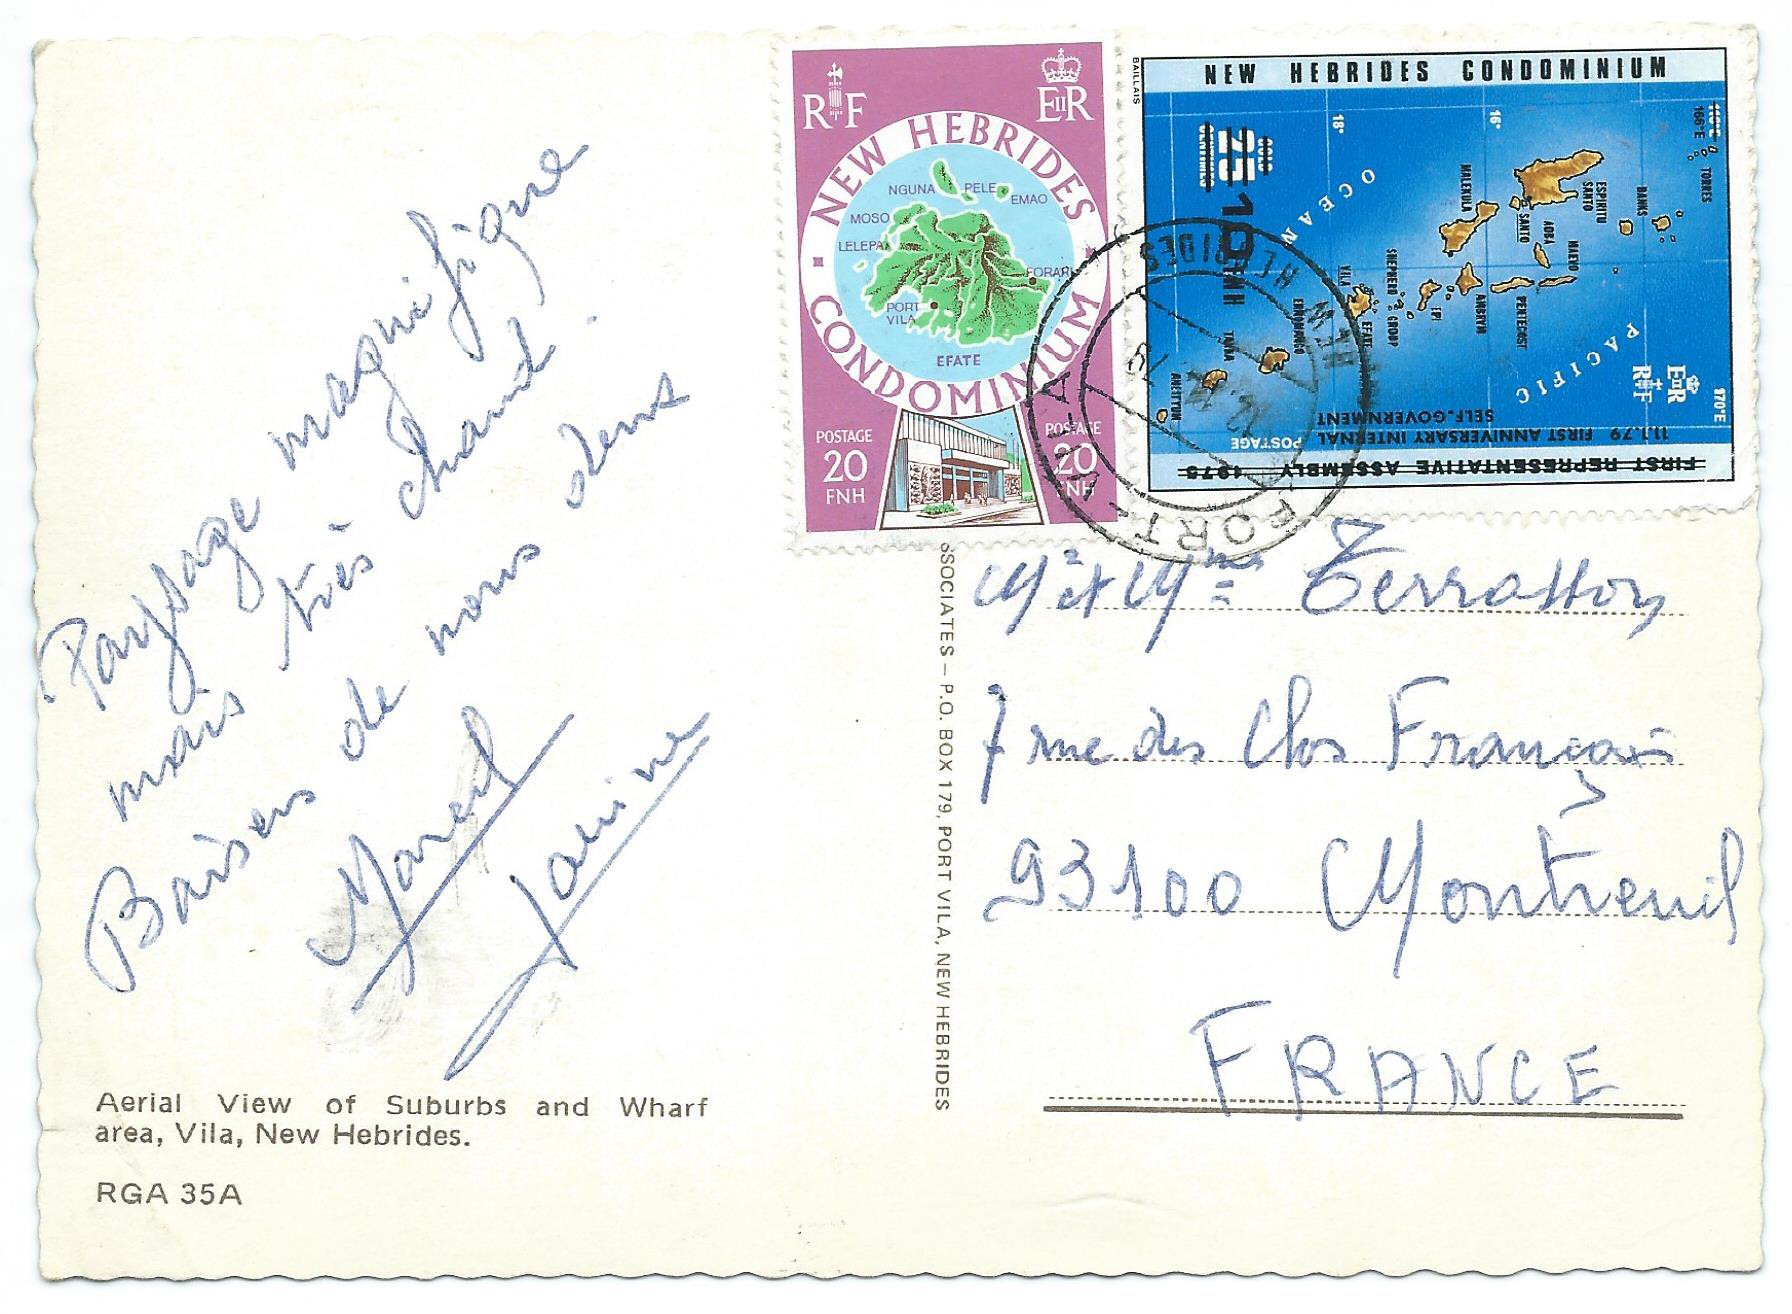 Paysage magnifique
mais très chaud.
Baisers de nous deux
Marcel
Janine
Aerial View of Suburbs and Wharf
area, Vila, New Hebrides.
RGA 35A
SSOCIATES – P.O. BOX 179, PORT VILA, NEW HEBRIDES
RF
EIIR
NEW HEBRIDES
CONDOMINIUM
NGUNA
PELE
EMAO
MOSO
LELEPA
FORARI
PORT
VILA
EFATE
POSTAGE
20
FNH
POSTAGE
20
FNH
BAILLAIS
NEW HEBRIDES CONDOMINIUM
18°
16°
166°E
170°E
TORRES
BANKS
ESPIRITU
SANTO
SANTO
AOBA
MAEVO
MALEKULA
PENTECOST
AMBRYM
EPI
SHEPHERD GROUP
VILA
EFATE
ERROMANGO
TANNA
ANEITYUM
PACIFIC
OCEAN
25
CENTIMES
10 FNH
EIIR
RF
POSTAGE
FIRST REPRESENTATIVE ASSEMBLY 1975
11.1.79 FIRST ANNIVERSARY INTERNAL
SELF-GOVERNMENT
PORT-VILA
NEW HEBRIDES
79
Mr et Mme Terrasson
7 rue des Clos Français
93100 Montreuil
FRANCE